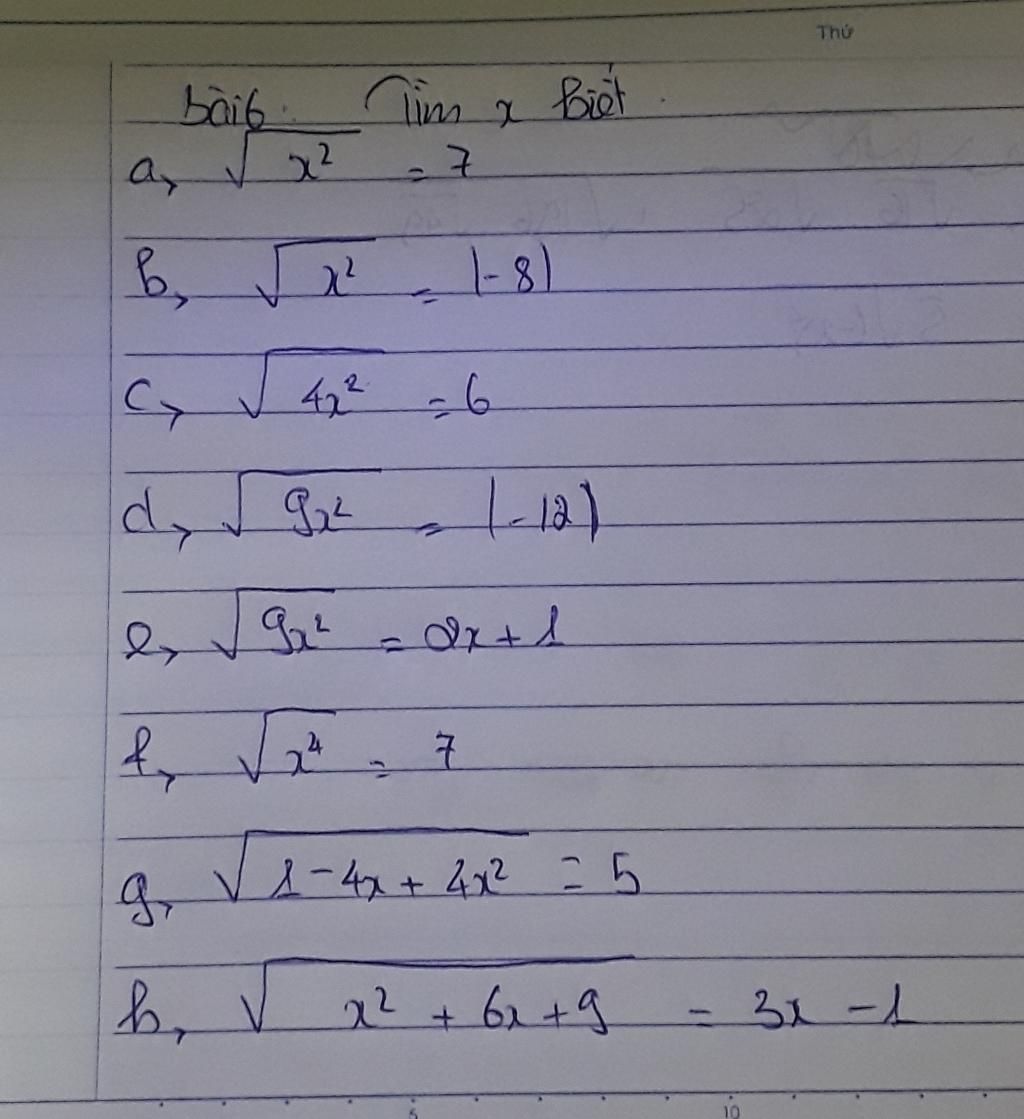 Thứ
Bài 6: Tìm x biết.
a, √x² = 7
b, √x² = |-8|
c, √4x² = 6
d, √9x² = |-12|
e, √9x² = 2x + 1
f, √x⁴ = 7
g, √1 - 4x + 4x² = 5
h, √x² + 6x + 9 = 3x - 1
5 10